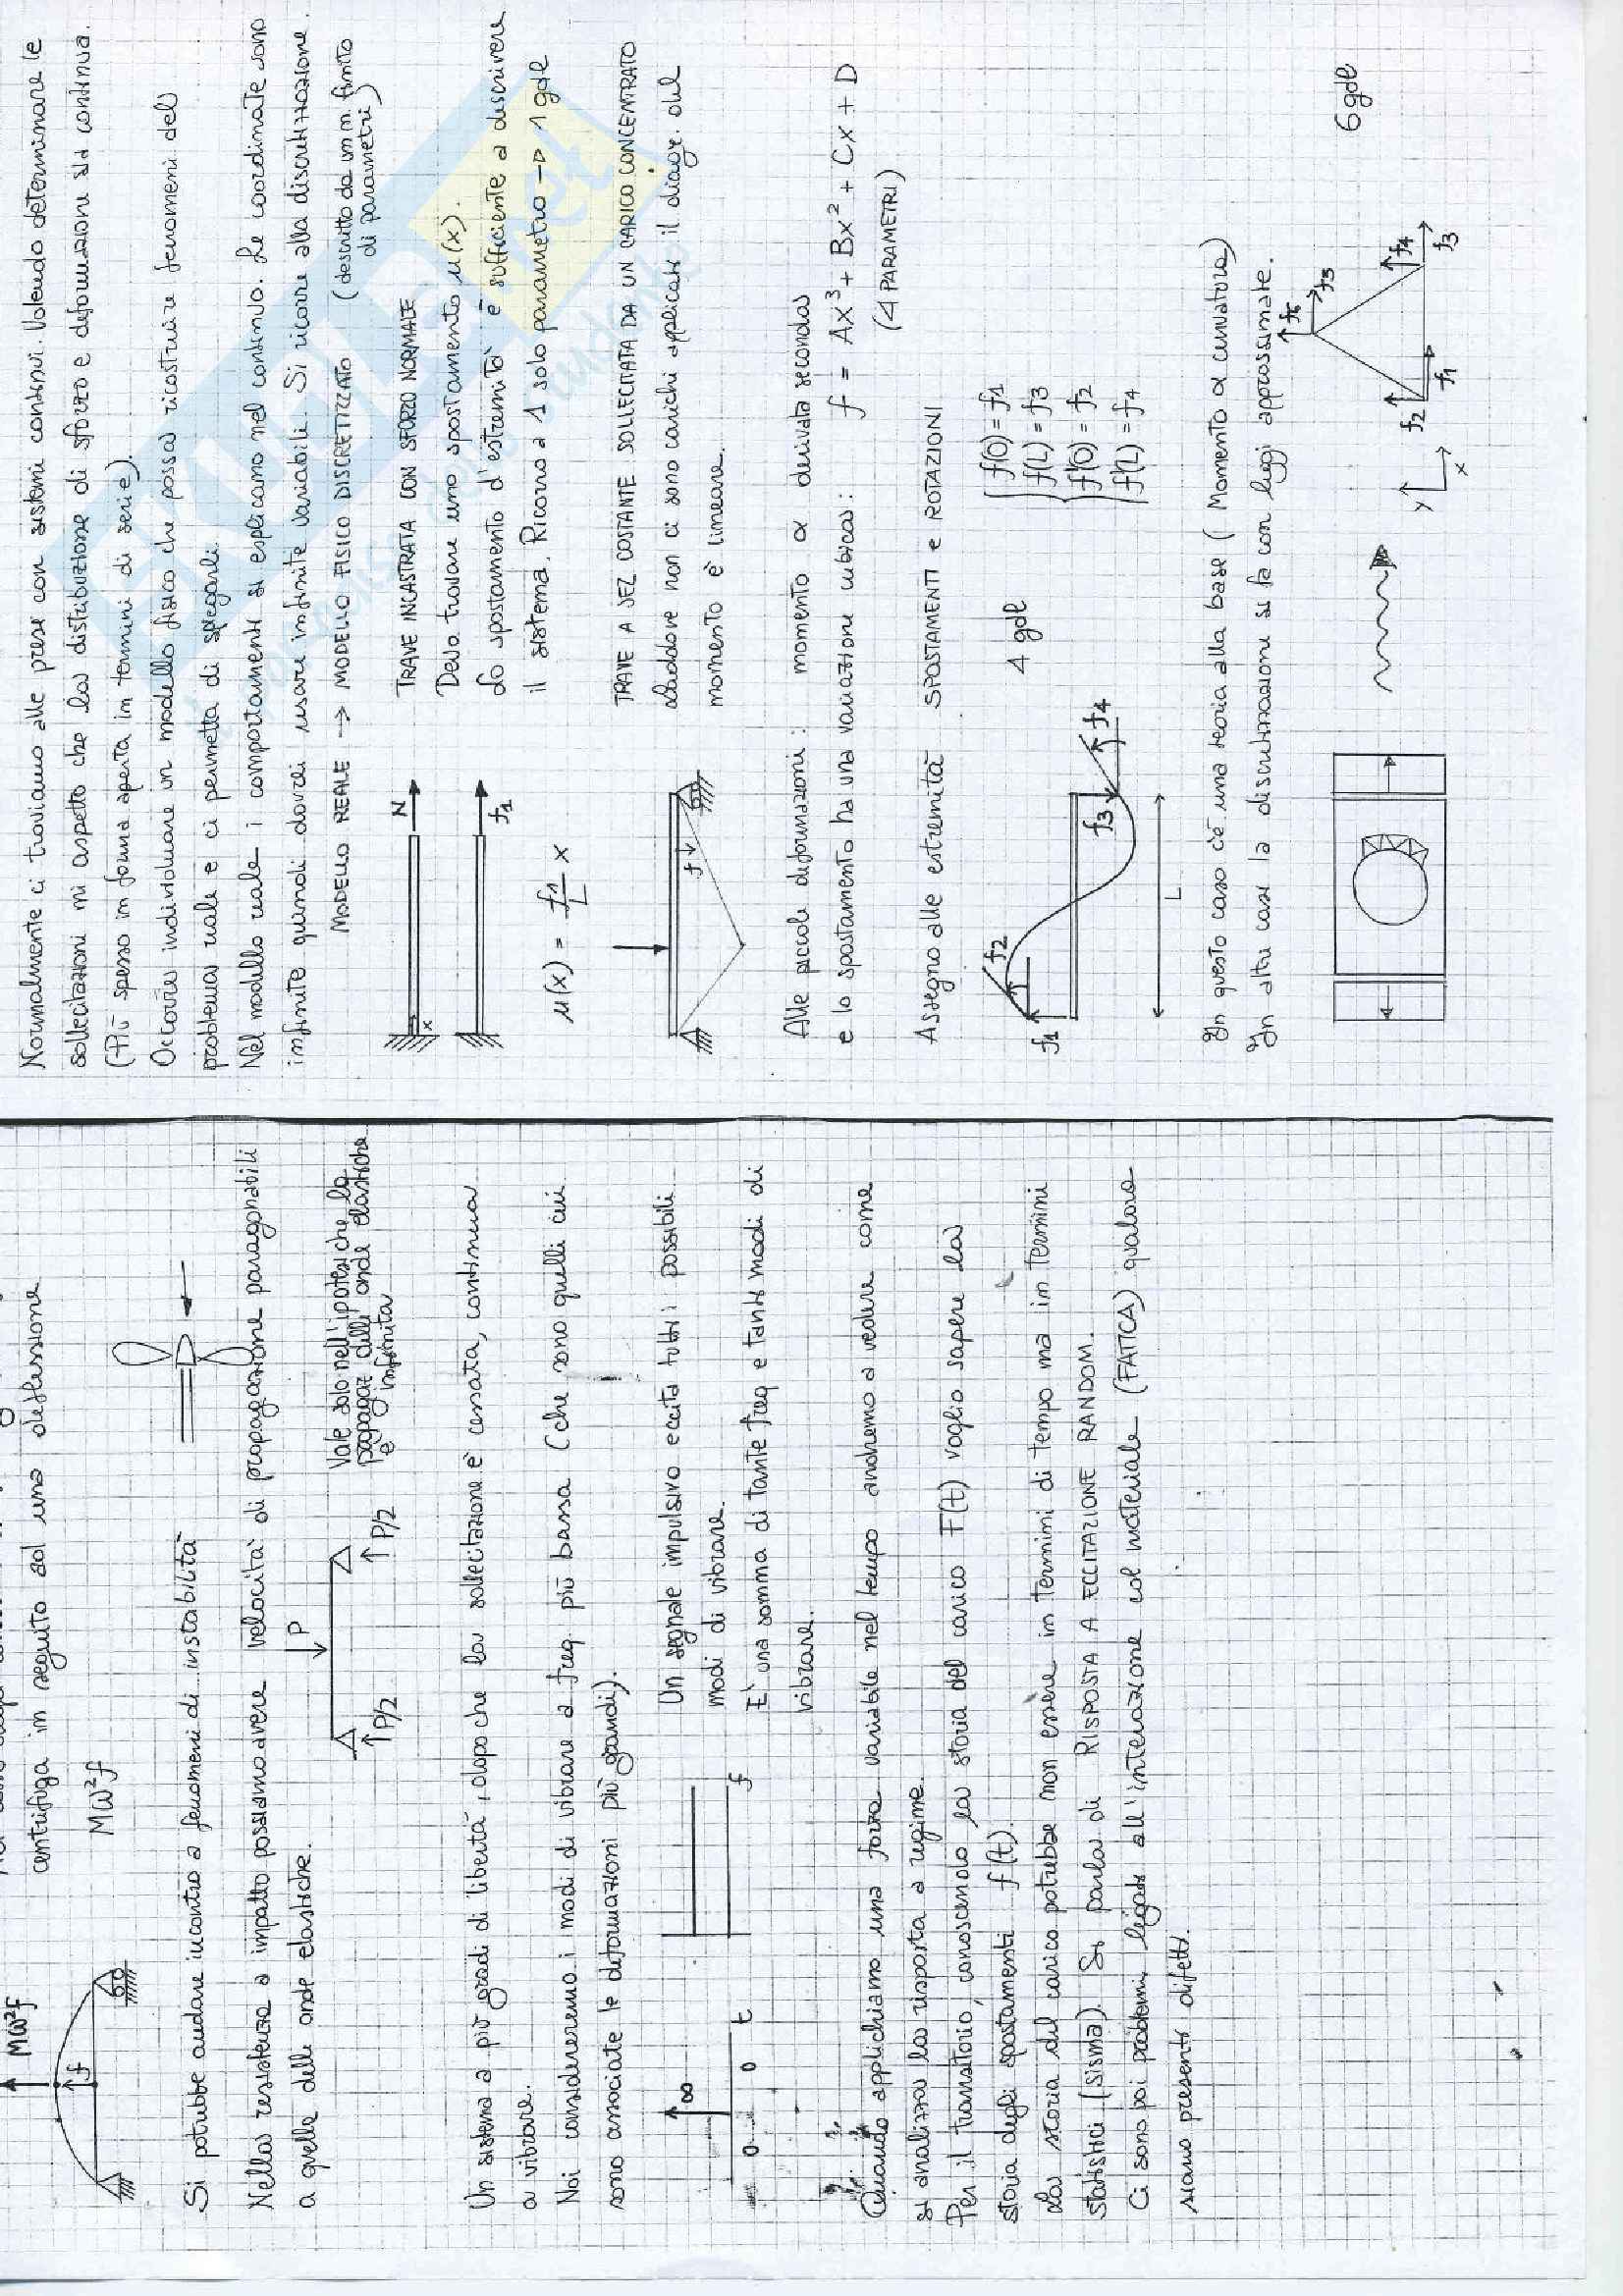 centrifuga in seguito ad una deflessione
Mω²f
Mω²f
f
Si potrebbe andare incontro a fenomeni di instabilità
Nella resistenza a impatto possiamo avere velocità di propagazione paragonabili
a quelle delle onde elastiche.
P
P/2
P/2
Vale solo nell'ipotesi che la
propagaz delle onde elastiche
è infinita
Un sistema a più gradi di libertà, dopo che la sollecitazione è cessata, continua
a vibrare.
Noi considereremo i modi di vibrare a freq. più bassa (che sono quelli cui
sono associate le deformazioni più grandi).
∞
0
0
t
f
Un segnale impulsivo eccita tutti i possibili
modi di vibrare.
E' una somma di tante freq e tanti modi di
vibrare.
Quando applichiamo una forza variabile nel tempo andremo a vedere come
si analizza la risposta a regime.
Per il transitorio, conoscendo la storia del carico F(t) voglio sapere la
storia degli spostamenti f(t).
La storia del carico potrebbe non essere in termini di tempo ma in termini
statistici (sisma). Si parla di RISPOSTA A ECCITAZIONE RANDOM.
Ci sono poi problemi legati all'interazione col materiale (FATICA) qualora
siano presenti difetti.
Normalmente ci troviamo alle prese con sistemi continui. Volendo determinare le
sollecitazioni mi aspetto che la distribuzione di sforzo e deformazione sia continua.
(Più spesso in forma aperta in termini di serie).
Occorre individuare un modello fisico che possa ricostruire fenomeni del
problema reale e ci permetta di spiegarli.
Nel modello reale i comportamenti si esplicano nel continuo. Le coordinate sono
infinite quindi dovrei usare infinite variabili. Si ricorre alla discretizzazione.
MODELLO REALE → MODELLO FISICO DISCRETIZZATO (descritto da un n. finito
di parametri)
N
x
f1
u(x) = f1/L x
TRAVE INCASTRATA CON SFORZO NORMALE
Devo trovare uno spostamento u(x).
Lo spostamento d'estremità è sufficiente a descrivere
il sistema. Ricorro a 1 solo parametro → 1 gdl
f
TRAVE A SEZ COSTANTE SOLLECITATA DA UN CARICO CONCENTRATO
laddove non ci sono carichi applicati il diagr. del
momento è lineare.
Alle piccole deformazioni: momento α derivata seconda
e lo spostamento ha una variazione cubica: f = Ax³ + Bx² + Cx + D
(4 PARAMETRI)
Assegno alle estremità SPOSTAMENTI e ROTAZIONI
f1
f2
f3
f4
L
4 gdl
f(0) = f1
f(L) = f3
f'(0) = f2
f'(L) = f4
In questo caso c'è una teoria alla base (Momento α curvatura)
In altri casi la discretizzazione si fa con leggi approssimate.
y
x
f2
f1
f6
f5
f4
f3
6 gdl